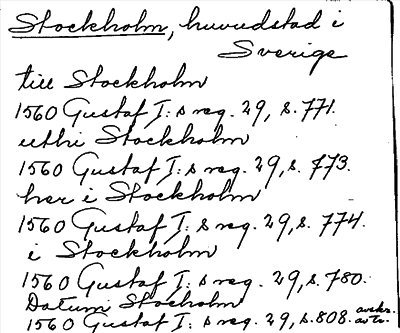 Stockholm, huvudstad i
Sverige
till Stockholm
1560 Gustaf I:s reg. 29, s. 771.
uthi Stockholm
1560 Gustaf I:s reg. 29, s. 773.
her i Stockholm
1560 Gustaf I:s reg. 29, s. 774.
i Stockholm
1560 Gustaf I:s reg. 29, s. 780.
Datum Stocholm
1560 Gustaf I:s reg. 29, s. 808.